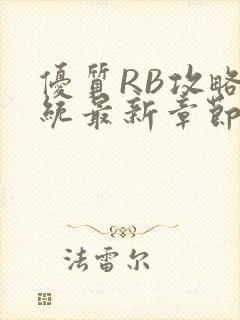 優質RB攻略
統最新章節
法雷尔